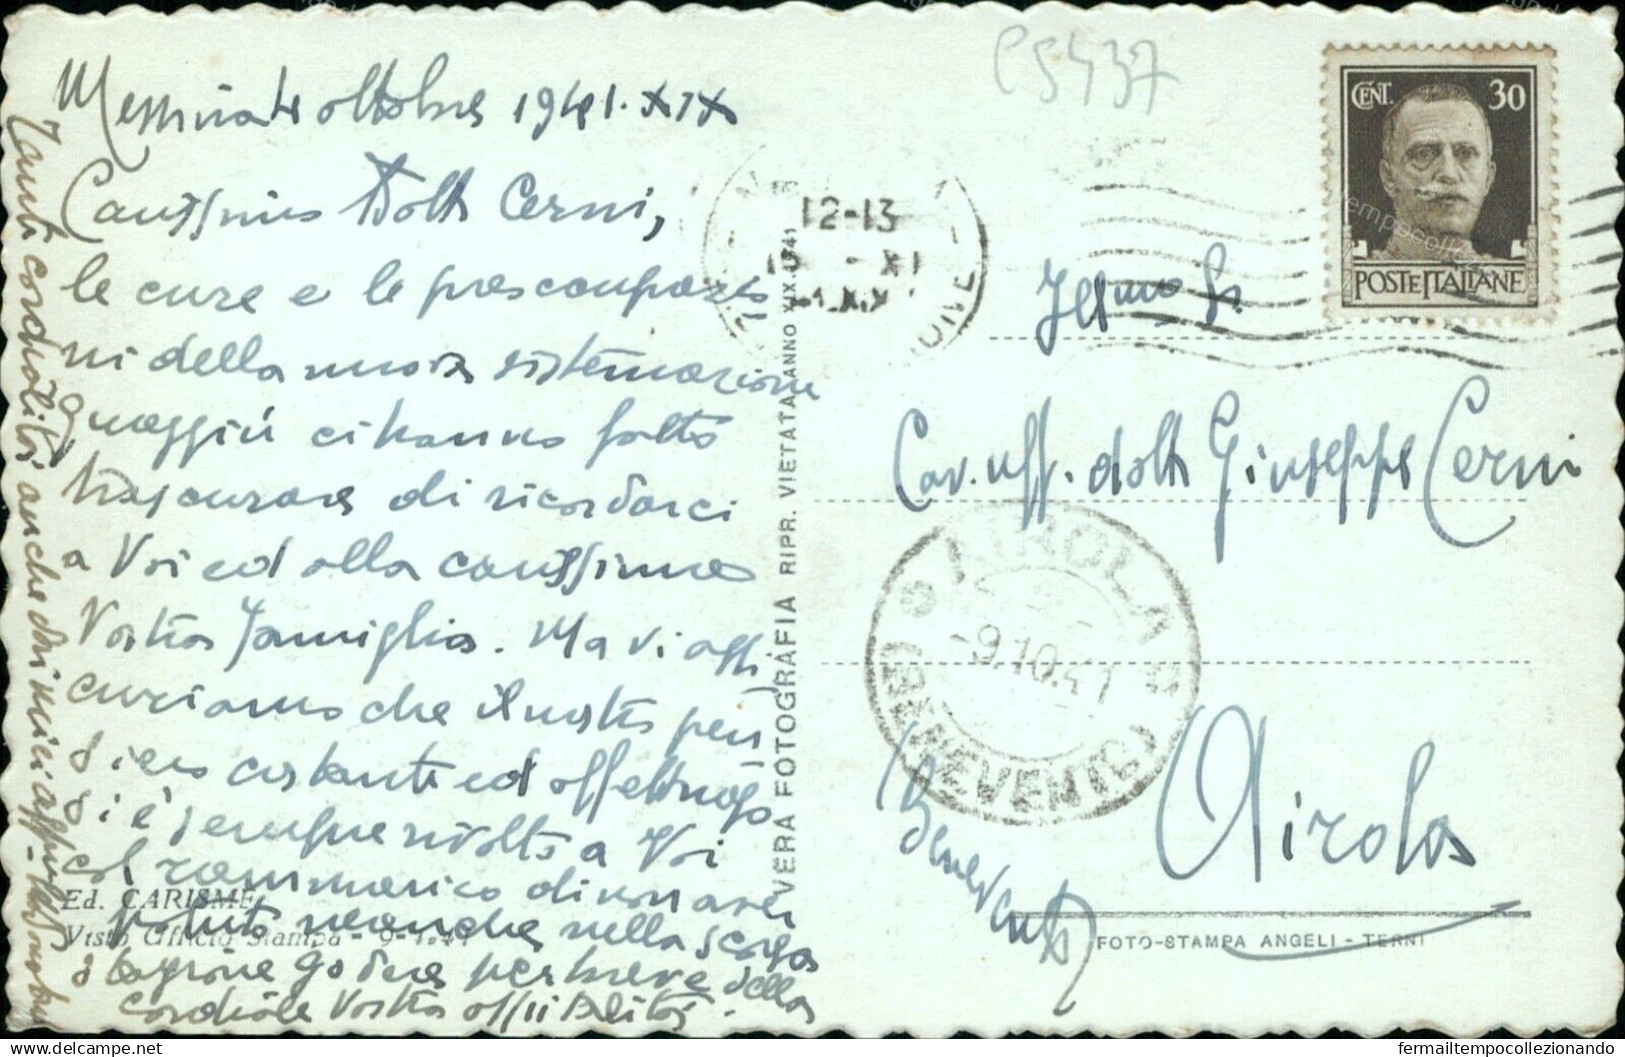 Messina 4 ottobre 1941.XIX
Carissimo Dott. Cerni,
le cure e le preoccupazio
ni della nuova sistemazione
quaggiù ci hanno fatto
trascurare di ricordarci
a Voi ed alla carissima
Vostra famiglia. Ma vi assi
curiamo che il nostro pen
siero costante ed affettuoso
si è sempre rivolto a Voi
col rammarico di non aver
potuto neanche nella scorsa
stagione godere per breve della
cordiale Vostra ospitalità.
Tanti cordialità anche dai miei
Ed. CARISME
Visto Ufficio Stampa - 9-1-41
VERA FOTOGRAFIA RIPR. VIETATA ANNO XIX.1941
C5437
12-13
CENT. 30
POSTE ITALIANE
Ill.mo Sr
Cav. uff. dott. Giuseppe Cerni
AIROLA
-9.10.41
(BENEVENTO)
Airola
Benevento
FOTO-STAMPA ANGELI - TERNI
delcampe.net
fermailtempocollezionando